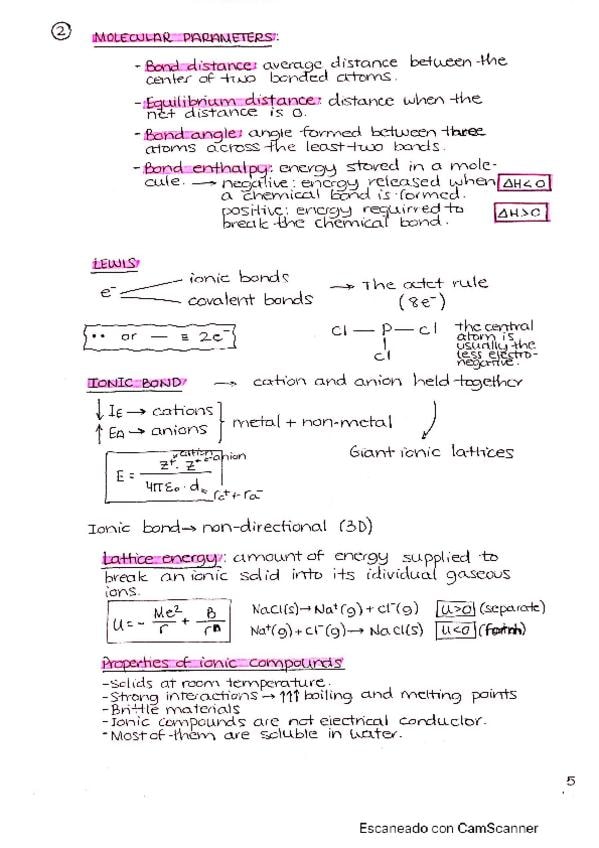 2 MOLECULAR PARAMETERS:
- Bond distance: average distance between the
center of two bonded atoms.
- Equilibrium distance: distance when the
net distance is 0.
- Bond angle: angle formed between three
atoms across the least two bonds.
- Bond enthalpy: energy stored in a mole-
cule. → negative: energy released when ΔH<0
a chemical bond is formed.
positive: energy requirred to ΔH>0
break the chemical bond.
LEWIS
e⁻ ionic bonds
covalent bonds
→ The octet rule
(8e⁻)
•• or — ≡ 2e⁻
Cl — P — Cl
Cl
the central
atom is
usually the
less electro-
negative.
IONIC BOND → cation and anion held together
↓ IE → cations
↑ EA → anions
metal + non-metal
Giant ionic lattices
cation anion
E = Z⁺ · Z⁻ / 4πε₀ · d = rc⁺ + ra⁻
Ionic bond → non-directional (3D)
Lattice energy: amount of energy supplied to
break an ionic solid into its idividual gaseous
ions.
U = - Me² / r + B / rⁿ
NaCl(s) → Na⁺(g) + Cl⁻(g) U>0 (separate)
Na⁺(g) + Cl⁻(g) → NaCl(s) U<0
Properties of ionic compounds
- Solids at room temperature.
- Strong interactions → ↑↑↑ boiling and melting points
- Brittle materials
- Ionic compounds are not electrical conductor.
- Most of them are soluble in water.
5
Escaneado con CamScanner